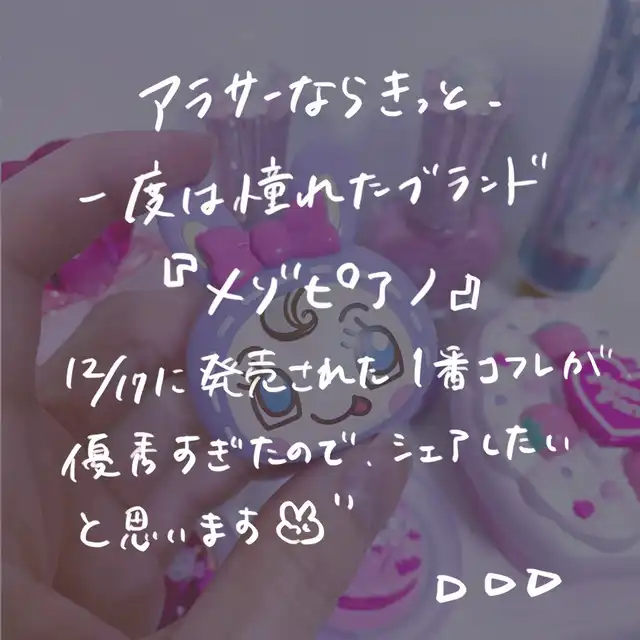 アラサーならきっと、
一度は憧れたブランド
『メゾピアノ』
12/17に発売された1番コフレが
優秀すぎたので、シェアしたい
と思います🐰"
▷▷▷